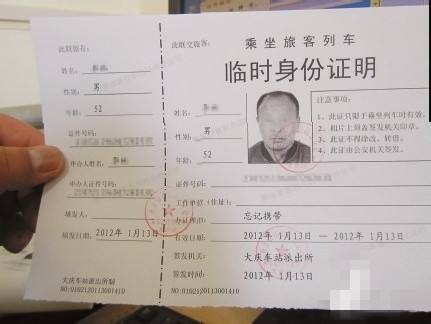 此联留存：
姓名：
性别： 男
年龄： 52
证件号码：
申办人姓名：
申办人证件号码：
填发人：
填发日期：2012年 1月13日
大庆车站派出所制
NO:0102120113001410
此联交旅客：
乘坐旅客列车
临时身份证明
姓名：
性别： 男
年龄： 52
注意事项：
1、此证只限于乘坐列车时有效。
2、相片上须盖签发机关印章。
3、此证不得涂改、转借。
4、此证由公安机关签发。
证件号码：
工作单位（住址）：
办证理由： 忘记携带
有效日期： 2012年 1月13日 — 2012年 1月13日
签发机关： 大庆车站派出所
签发时间： 2012年 1月13日
NO:0102120113001410